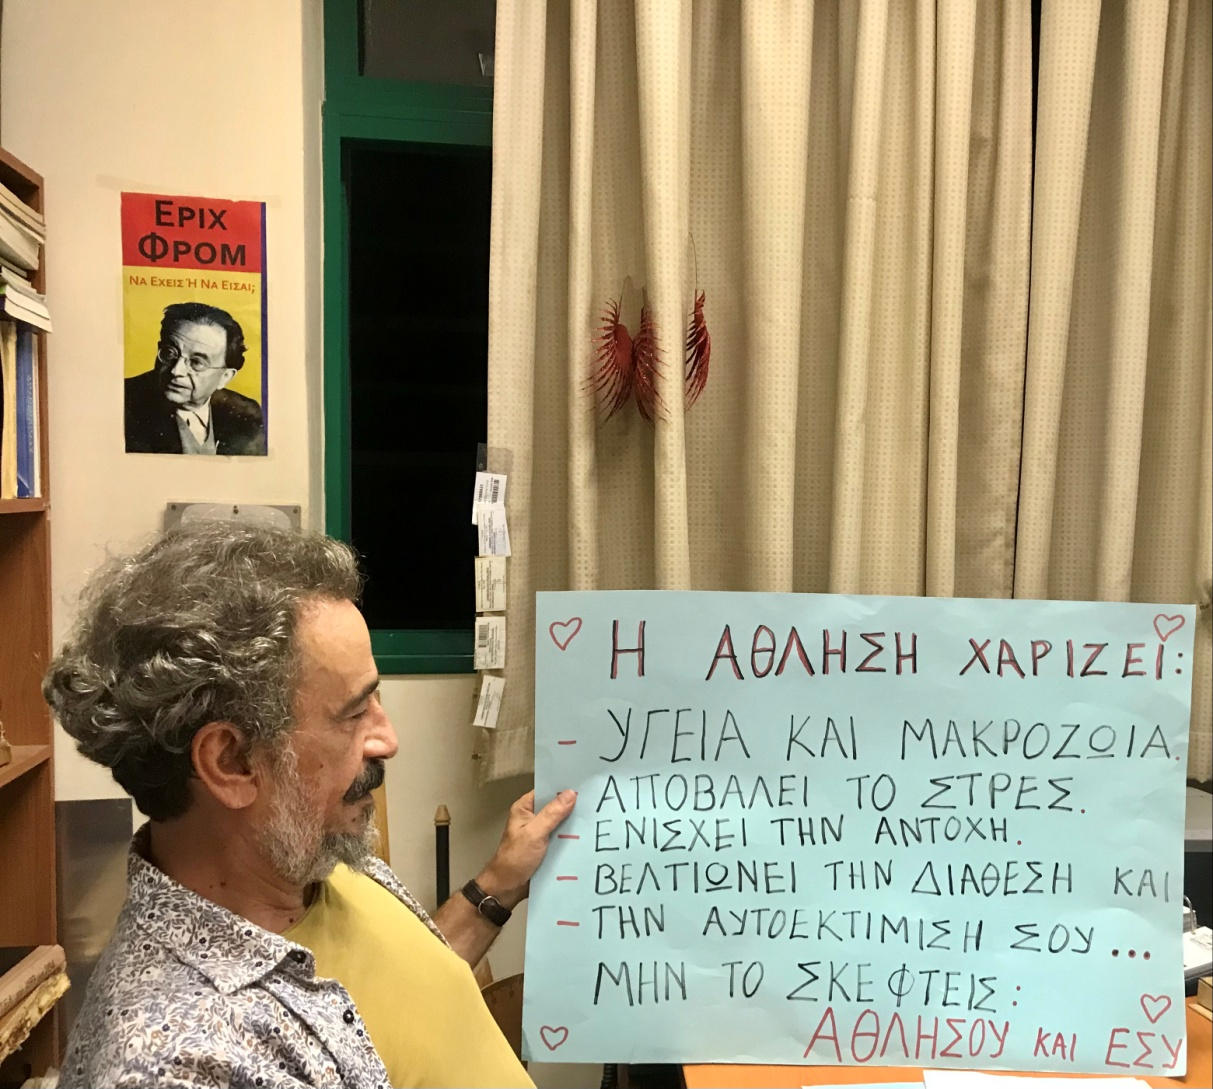 ΕΡΙΧ
ΦΡΟΜ
ΝΑ ΕΧΕΙΣ Ή ΝΑ ΕΙΣΑΙ;
Η ΑΘΛΗΣΗ ΧΑΡΙΖΕΙ:
- ΥΓΕΙΑ ΚΑΙ ΜΑΚΡΟΖΩΙΑ.
- ΑΠΟΒΑΛΕΙ ΤΟ ΣΤΡΕΣ.
- ΕΝΙΣΧΕΙ ΤΗΝ ΑΝΤΟΧΗ.
- ΒΕΛΤΙΩΝΕΙ ΤΗΝ ΔΙΑΘΕΣΗ ΚΑΙ
- ΤΗΝ ΑΥΤΟΕΚΤΙΜΙΣΗ ΣΟΥ...
ΜΗΝ ΤΟ ΣΚΕΦΤΕΙΣ:
ΑΘΛΗΣΟΥ ΚΑΙ ΕΣΥ